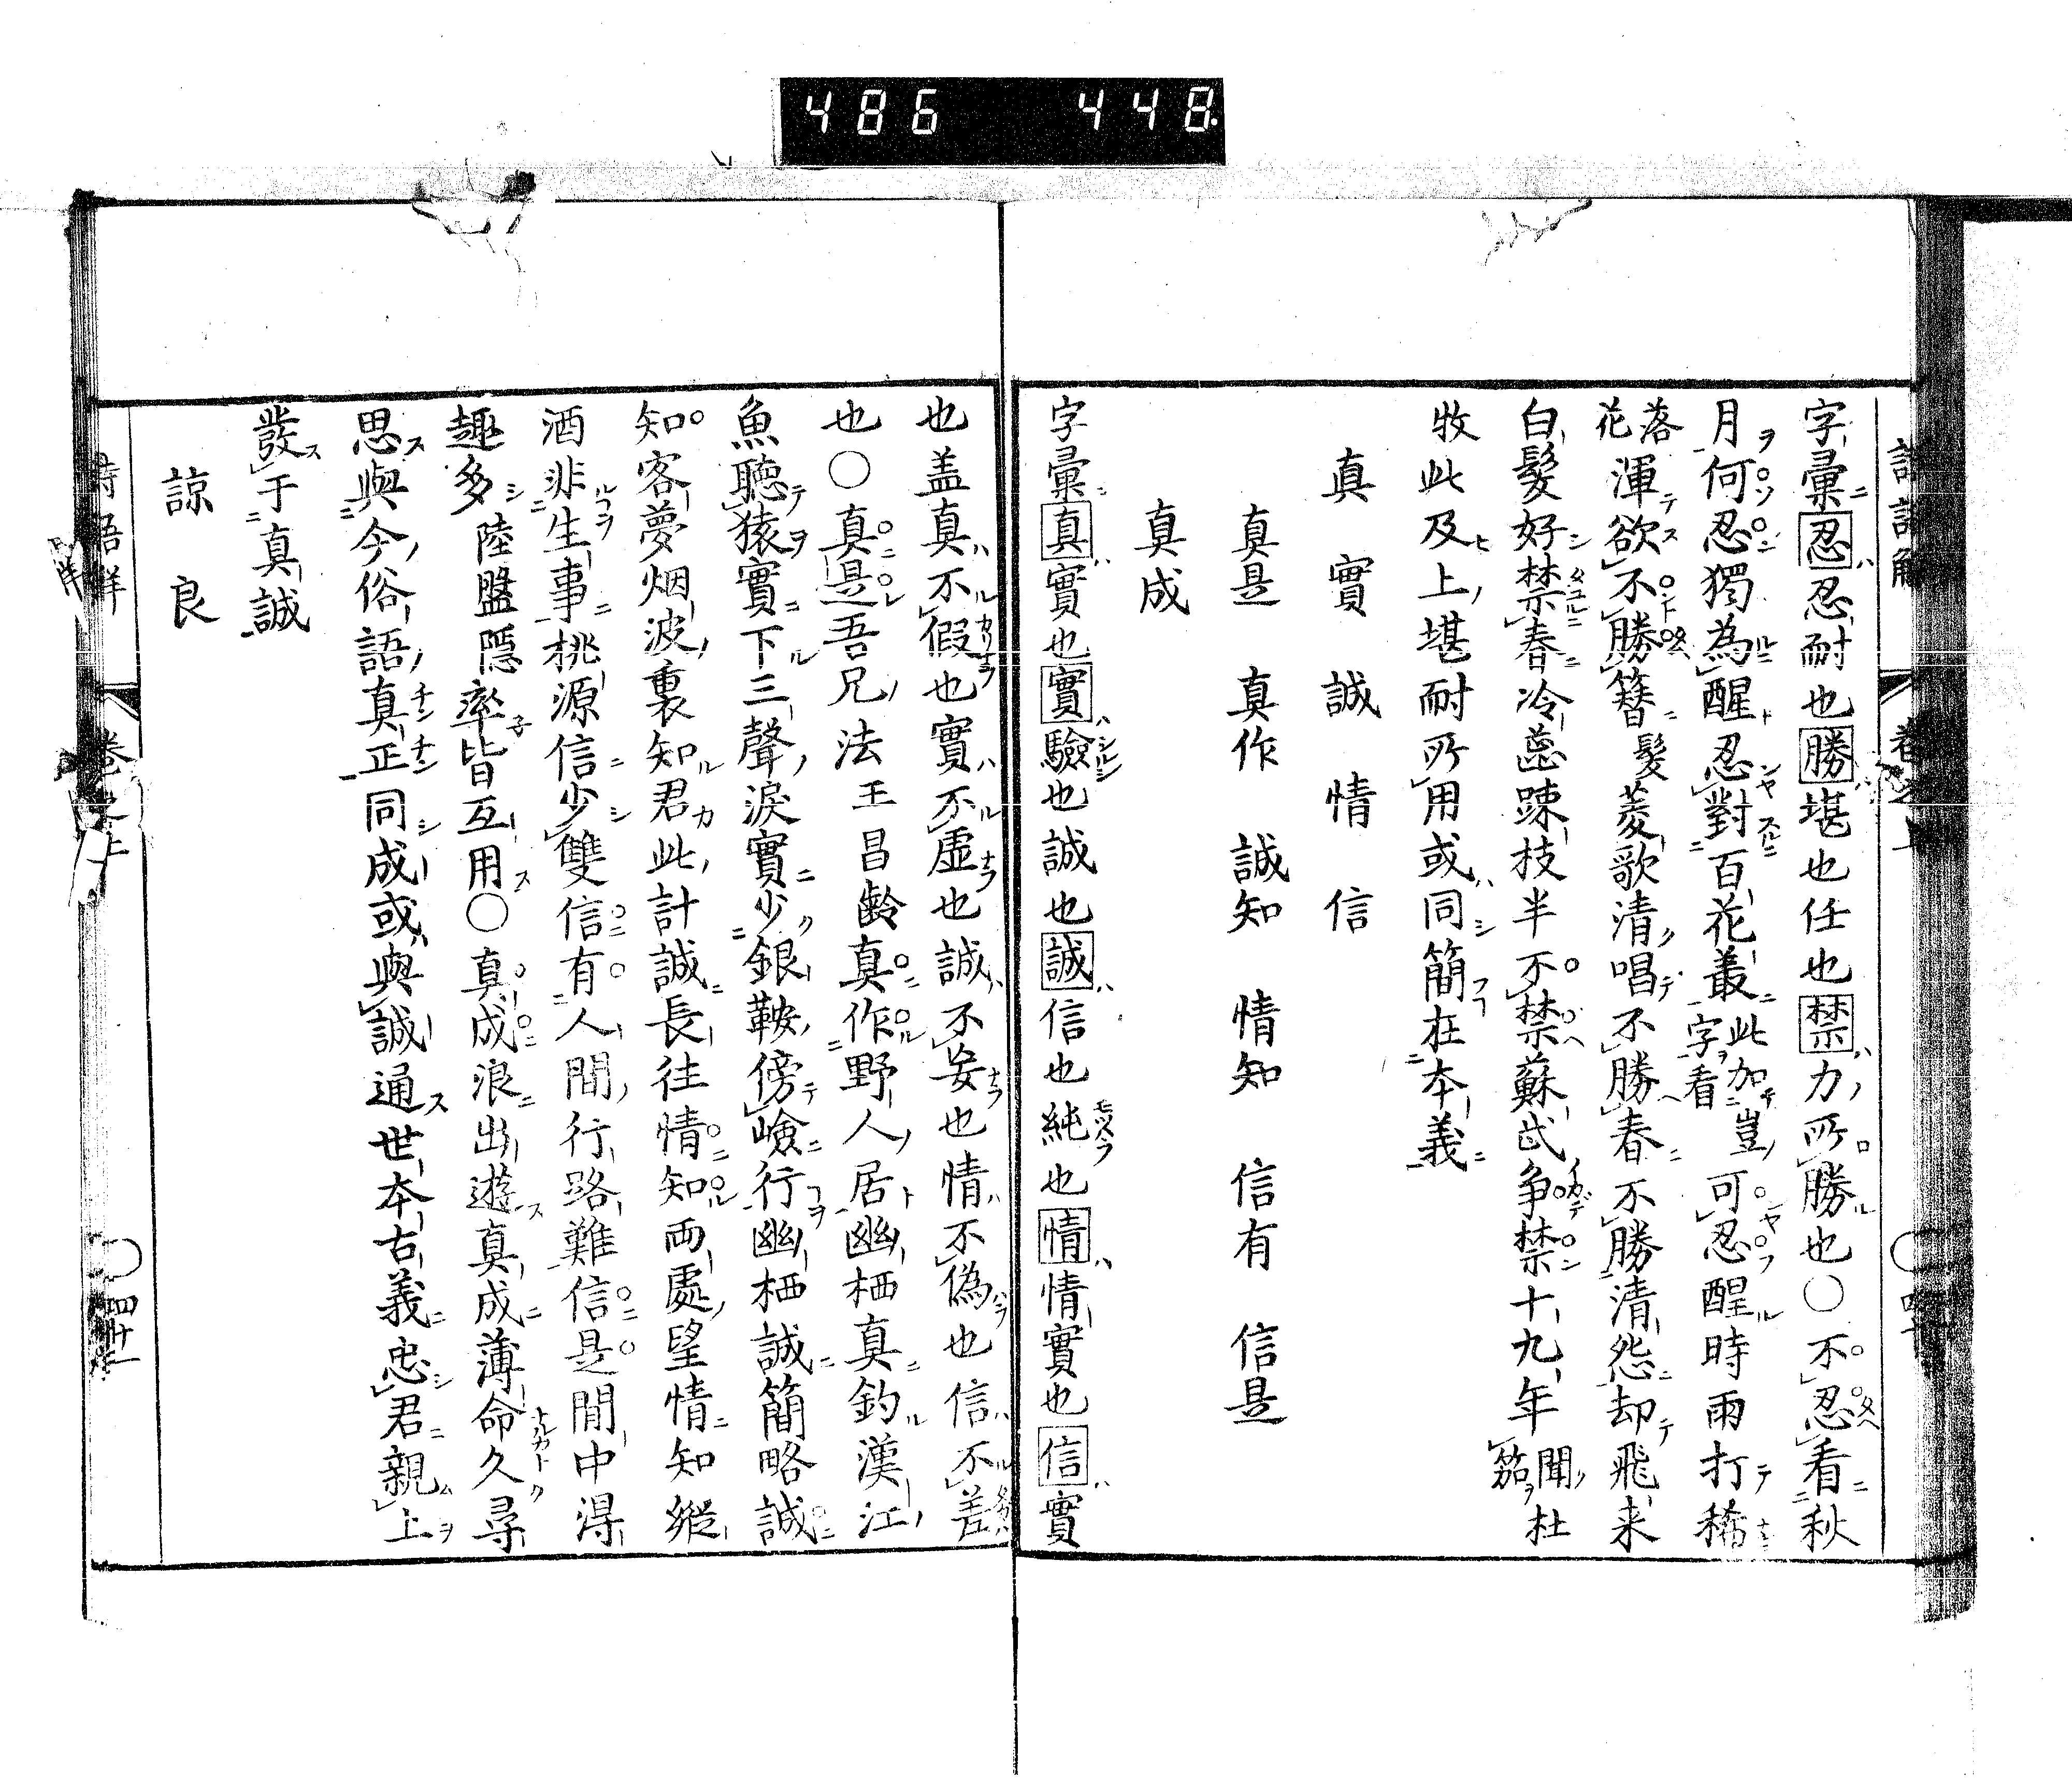 486 448
字彙忍忍耐也勝堪也任也禁力所勝也〇不忍看秋
月何忍獨為醒忍對百花叢此加豈字看可忍醒時雨打稀
落花渾欲不勝簪髮菱歌清唱不勝春不勝清怨却飛来
白髮好禁春冷蕊踈枝半不禁蘇武争禁十九年聞笳杜
牧此及上堪耐所用或同簡在本義
真 實 誠 情 信
真是 真作 誠知 情知 信有 信是
真成
字彙真實也實驗也誠也誠信也純也情情實也信實
也盖真不假也實不虚也誠不妄也情不偽也信不差
也〇真是吾兄法王昌齡真作野人居幽栖真釣漢江
魚聽猿實下三聲淚實少銀鞍傍險行幽栖誠簡略誠
知客夢烟波裏知君此計誠長往情知兩處望情知縱
酒非生事桃源信少雙信有人間行路難信是閒中得
趣多陸盤隱率皆互用〇真成浪出遊真成薄命久尋
思與今俗語真正同成或與誠通世本古義忠君親上
發于真誠
諒 良
卷之上
四十一